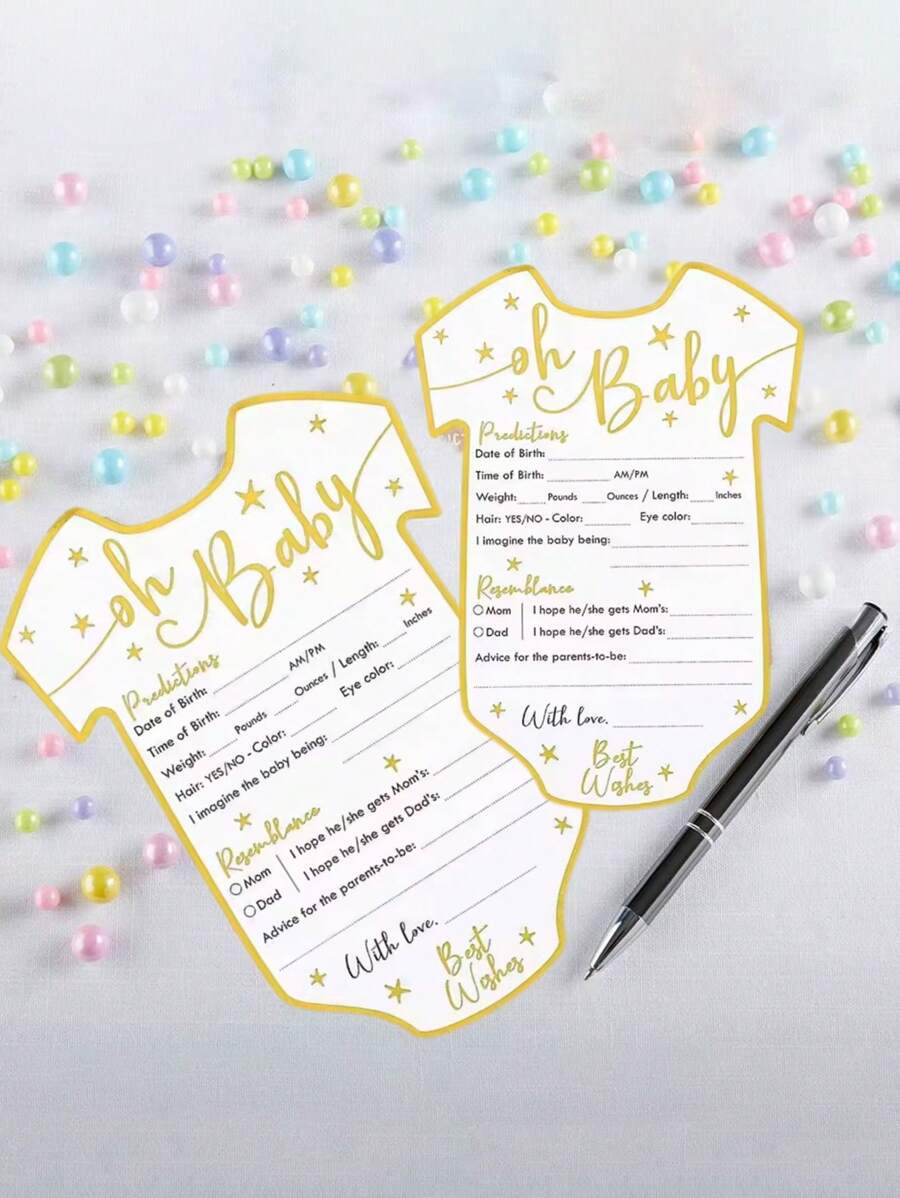 oh Baby
Predictions
Date of Birth:
Time of Birth: AM/PM
Weight: Pounds Ounces / Length: Inches
Hair: YES/NO - Color: Eye color:
I imagine the baby being:
Resemblance
Mom I hope he/she gets Mom's:
Dad I hope he/she gets Dad's:
Advice for the parents-to-be:
With love.
Best
Wishes
oh Baby
Predictions
Date of Birth:
Time of Birth: AM/PM
Weight: Pounds Ounces / Length: Inches
Hair: YES/NO - Color: Eye color:
I imagine the baby being:
Resemblance
Mom I hope he/she gets Mom's:
Dad I hope he/she gets Dad's:
Advice for the parents-to-be:
With love.
Best
Wishes